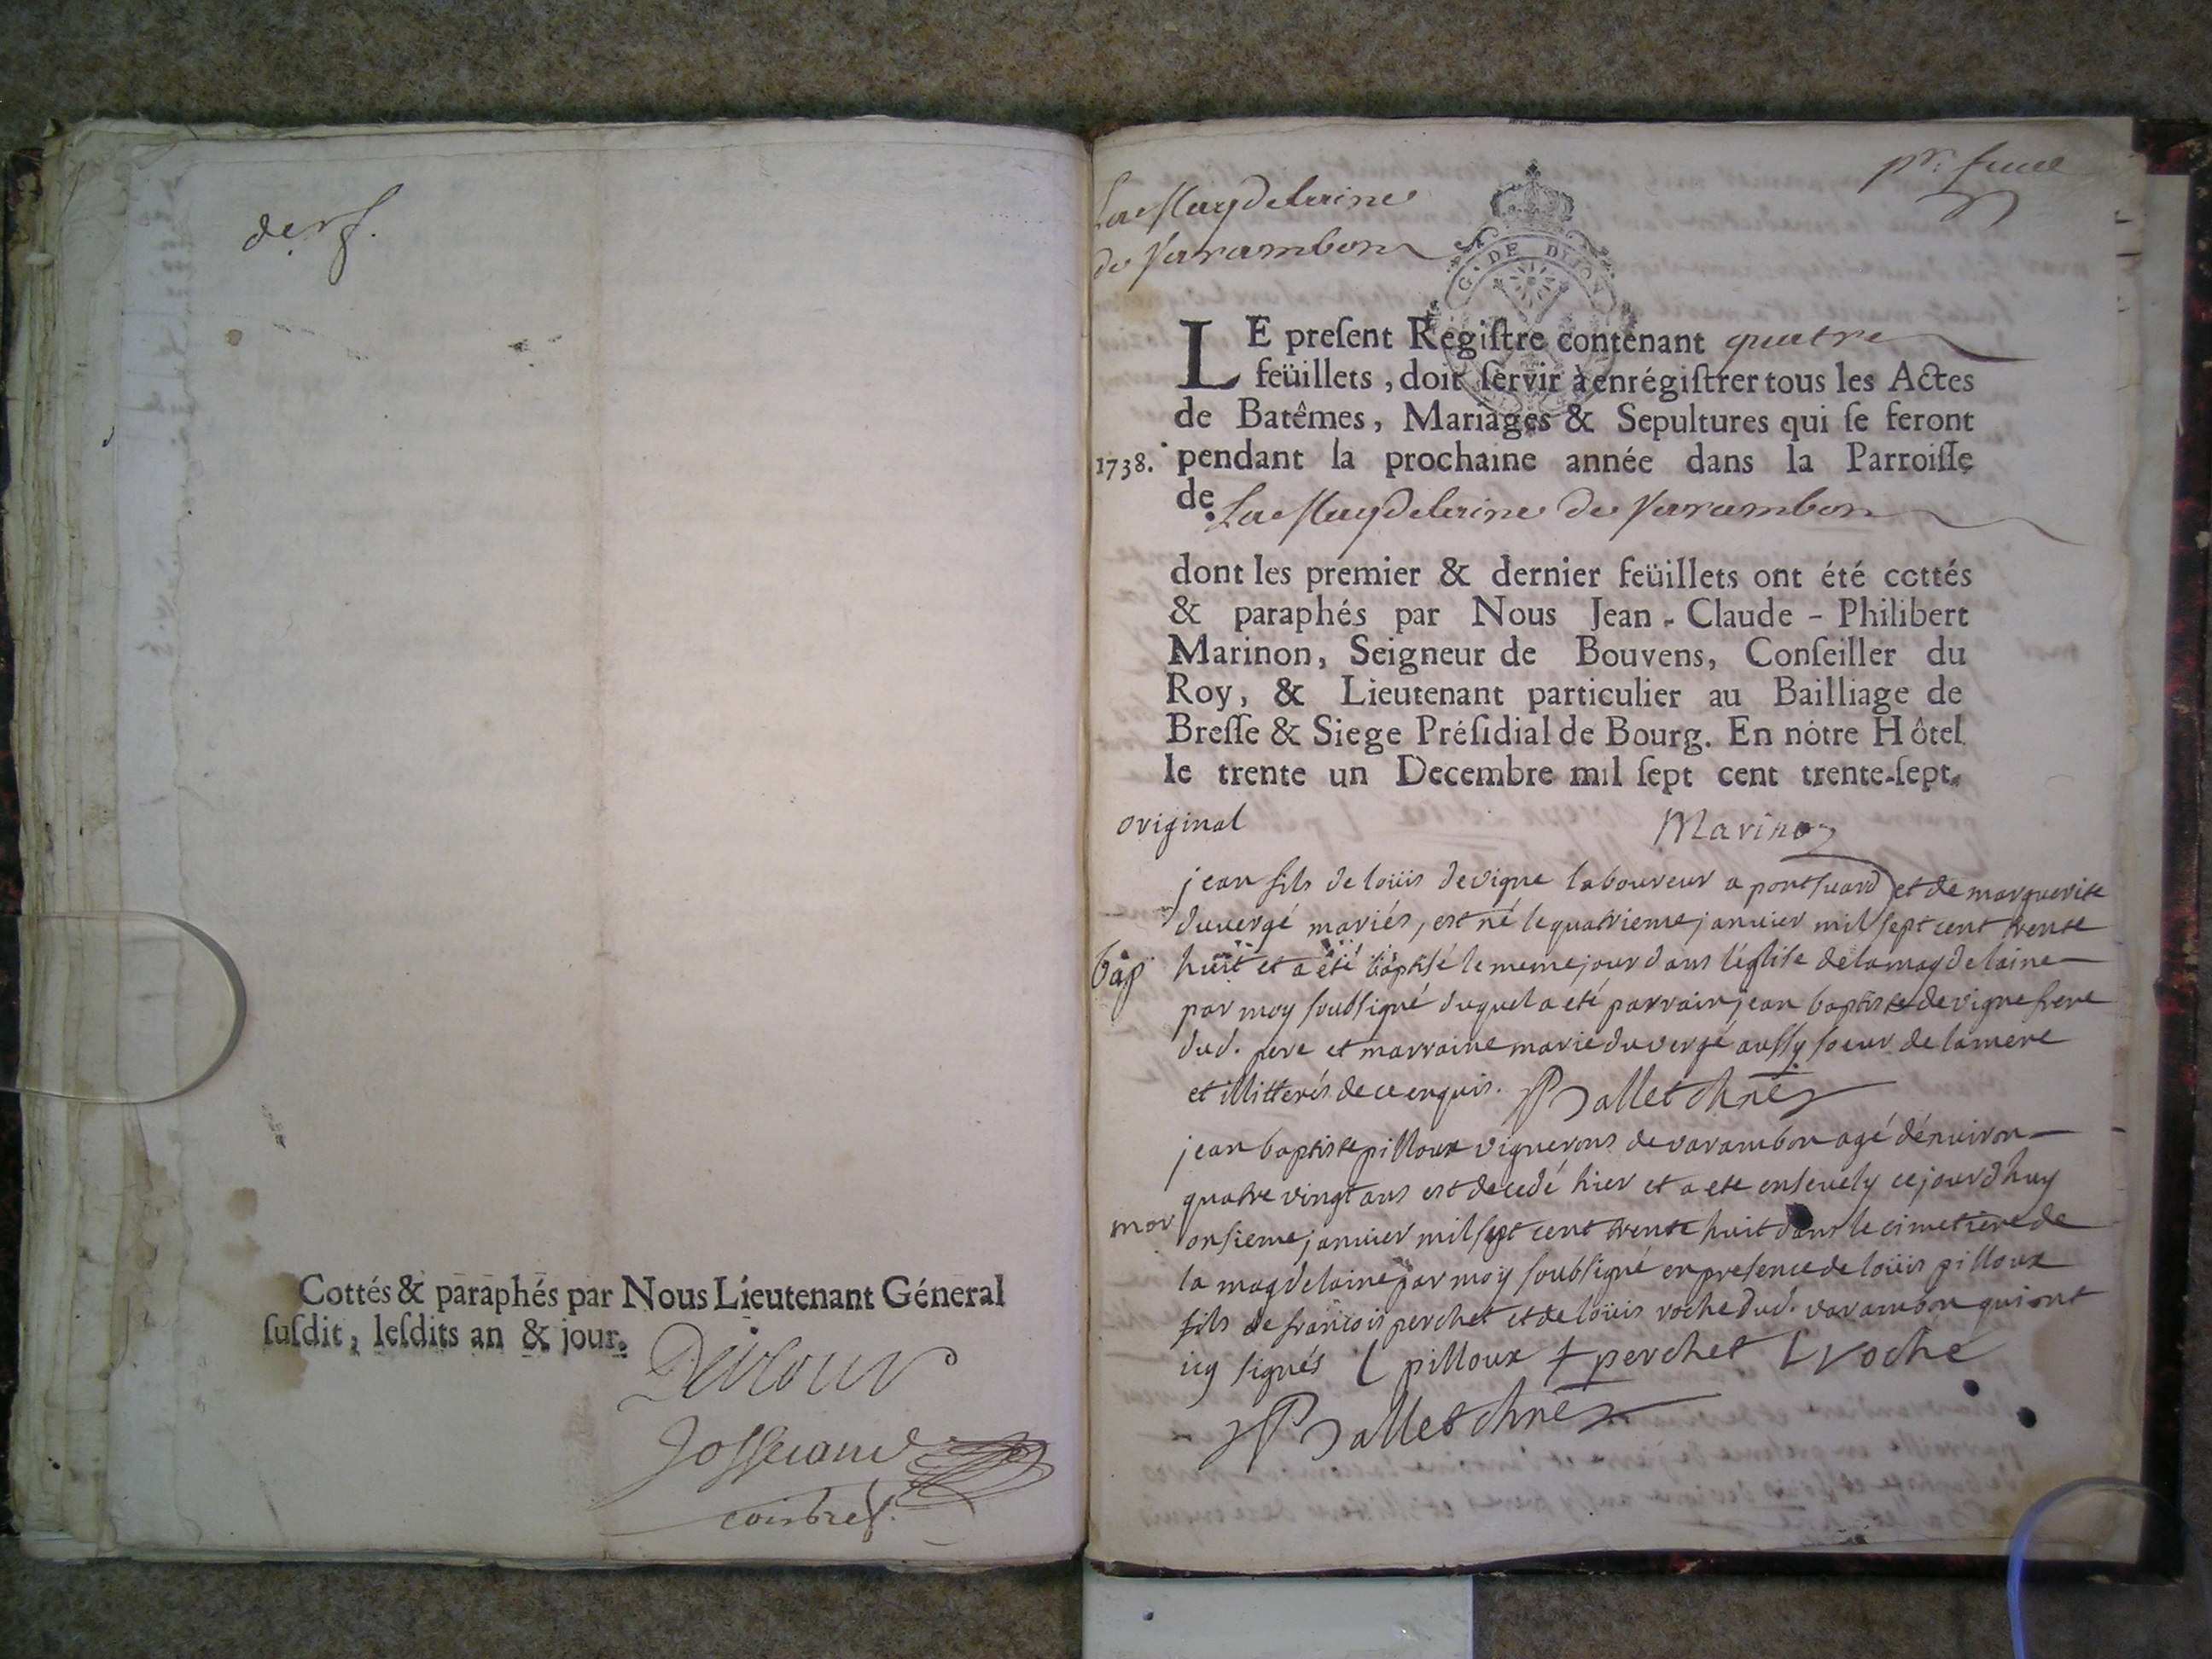 der f.
Cottés & paraphés par Nous Lieutenant Géneral
ſuſdit, leſdits an & jour.
La Magdelaine
de Varambon
G. DE DIJON
LE preſent Regiſtre contenant quatre
feüillets, doit ſervir à enrégiſtrer tous les Actes
de Batêmes, Mariages & Sepultures qui ſe feront
1738. pendant la prochaine année dans la Parroiſſe
de La Magdelaine de Varambon
dont les premier & dernier feüillets ont été cottés
& paraphés par Nous Jean-Claude-Philibert
Marinon, Seigneur de Bouvens, Conſeiller du
Roy, & Lieutenant particulier au Bailliage de
Breſſe & Siege Préſidial de Bourg. En nôtre Hôtel
le trente un Decembre mil ſept cent trente-ſept.
original Marinon
jean fils de loüis devigne laboureur a pontsuard et de marguerite
duvergé mariés, est né le quatrieme janvier mil sept cent trente
bap huit et a eté baptisé le meme jour dans l'église de la magdelaine
par moy soubsigné duquel a eté parrain jean baptiste devigne frere
dud. pere et marraine marie duvergé aussy soeur de la mere
et illitterés de ce enquis. Ballet
jean baptiste pilloux vignerons de varambon agé dénviron
quatre vingt ans est decedé hier et a ete ensevely cejourdhuy
mor onsieme janvier mil sept cent trente huit dans le cimetiere de
la magdelaine par moy soubsigné en presence de loüis pilloux
fils de françois perchet et de loüis roche dud. varambon qui ont
icy signés L pilloux f perchet L roche
Ballet